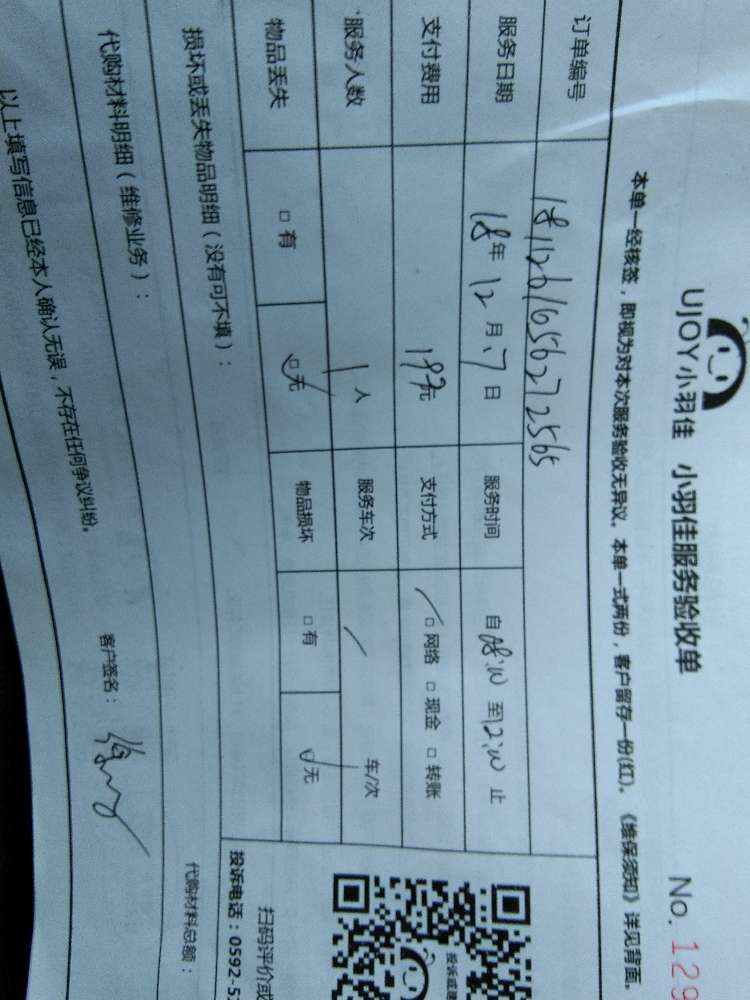 UJOY小羽佳 小羽佳服务验收单 No. 129
本单一经核签，即视为对本次服务验收无异议。本单一式两份，客户留存一份(红)。《维保须知》详见背面。
订单编号 1811261656272565
服务日期 18年12月7日 服务时间 自08:00至12:00止
支付费用 元 支付方式 □网络 □现金 □转账
服务人数 1人 服务车次 / 车/次
物品丢失 □有 □无 物品损坏 □有 □无
损坏或丢失物品明细（没有可不填）：
代购材料明细（维修业务）：
代购材料总额：
以上填写信息已经本人确认无误，不存在任何争议纠纷。
客户签名：
扫码评价或
投诉电话：0592-5